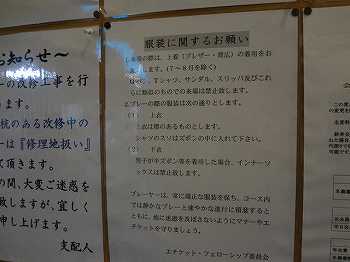 お知らせ～
の改修工事を行
ます。
杭のある改修中の
ーは『修理地扱い』
て頂きます。
の間、大変ご迷惑を
致しますが、宜しく
申し上げます。
支配人
服装に関するお願い
1.来場の際は、上着（ブレザー・背広）の着用をお
します。（7～8月を除く）
Tシャツ、サンダル、スリッパ及びこれ
らに類似のものでの来場は禁止致します。
2.プレーの際の服装は次の通りとします。
(1) 上衣
上衣は襟のあるものとします。
シャツのスソはズボンの中に入れて下さい。
(2) 下衣
男子が半ズボン等を着用した場合、インナーソ
ックスは禁止致します。
プレーヤーは、常に端正な服装を保ち、コース内
では静かなプレーと速やかな進行に留意すると
ともに、他に迷惑を及ぼさないようにマナーやエ
チケットを守りましょう。
エチケット・フェローシップ委員会